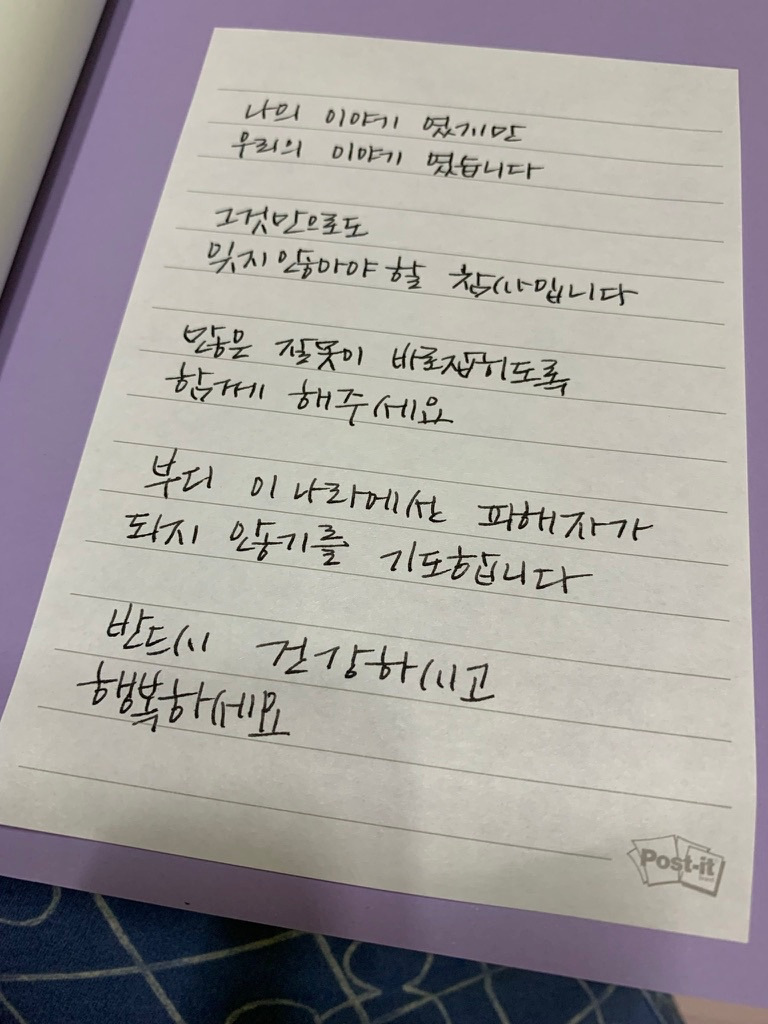 나의 이야기 였지만
우리의 이야기 였습니다
그것만으로도
잊지 않아야 할 참사입니다
많은 잘못이 바로잡히도록
함께 해주세요
부디 이 나라에선 피해자가
되지 않기를 기도합니다
반드시 건강하시고
행복하세요
Post-it